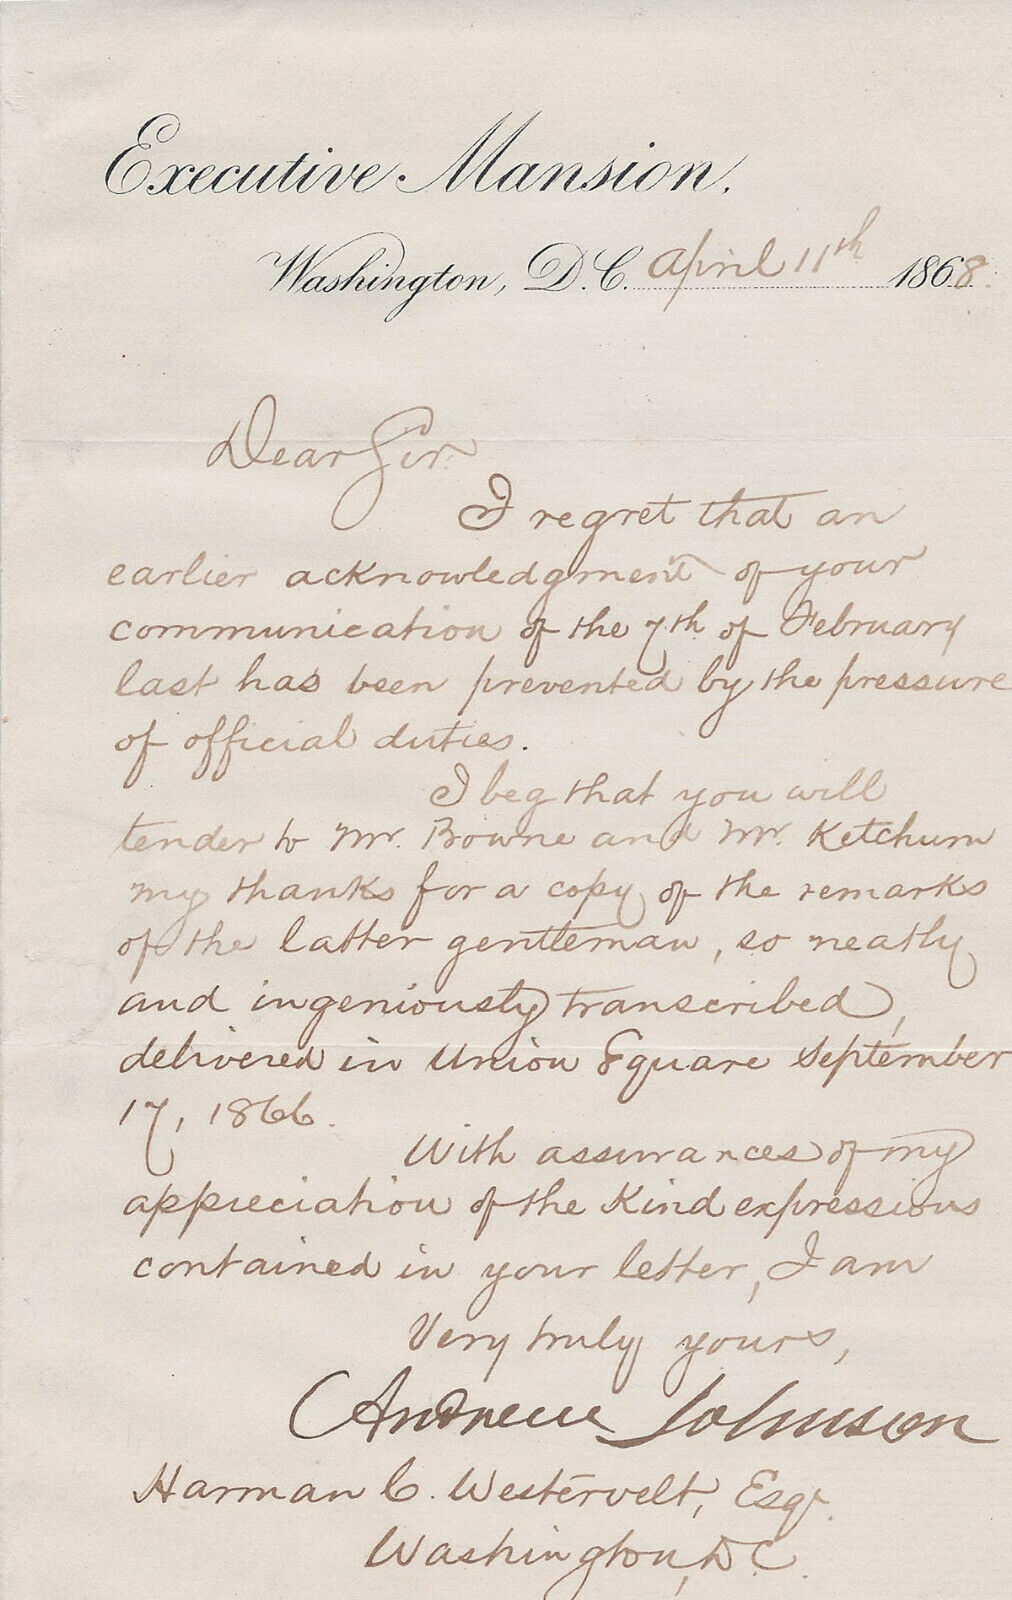 Executive Mansion.
Washington, D.C. April 11th 1868.
Dear Sir
I regret that an
earlier acknowledgment of your
communication of the 7th of February
last has been prevented by the pressure
of official duties.
I beg that you will
tender to Mr. Bowne and Mr. Ketchum
my thanks for a copy of the remarks
of the latter gentleman, so neatly
and ingeniously transcribed,
delivered in Union Square September
17, 1866.
With assurances of my
appreciation of the kind expressions
contained in your letter, I am
Very truly yours,
Andrew Johnson
Harman C. Westervelt, Esqr.
Washington, D.C.